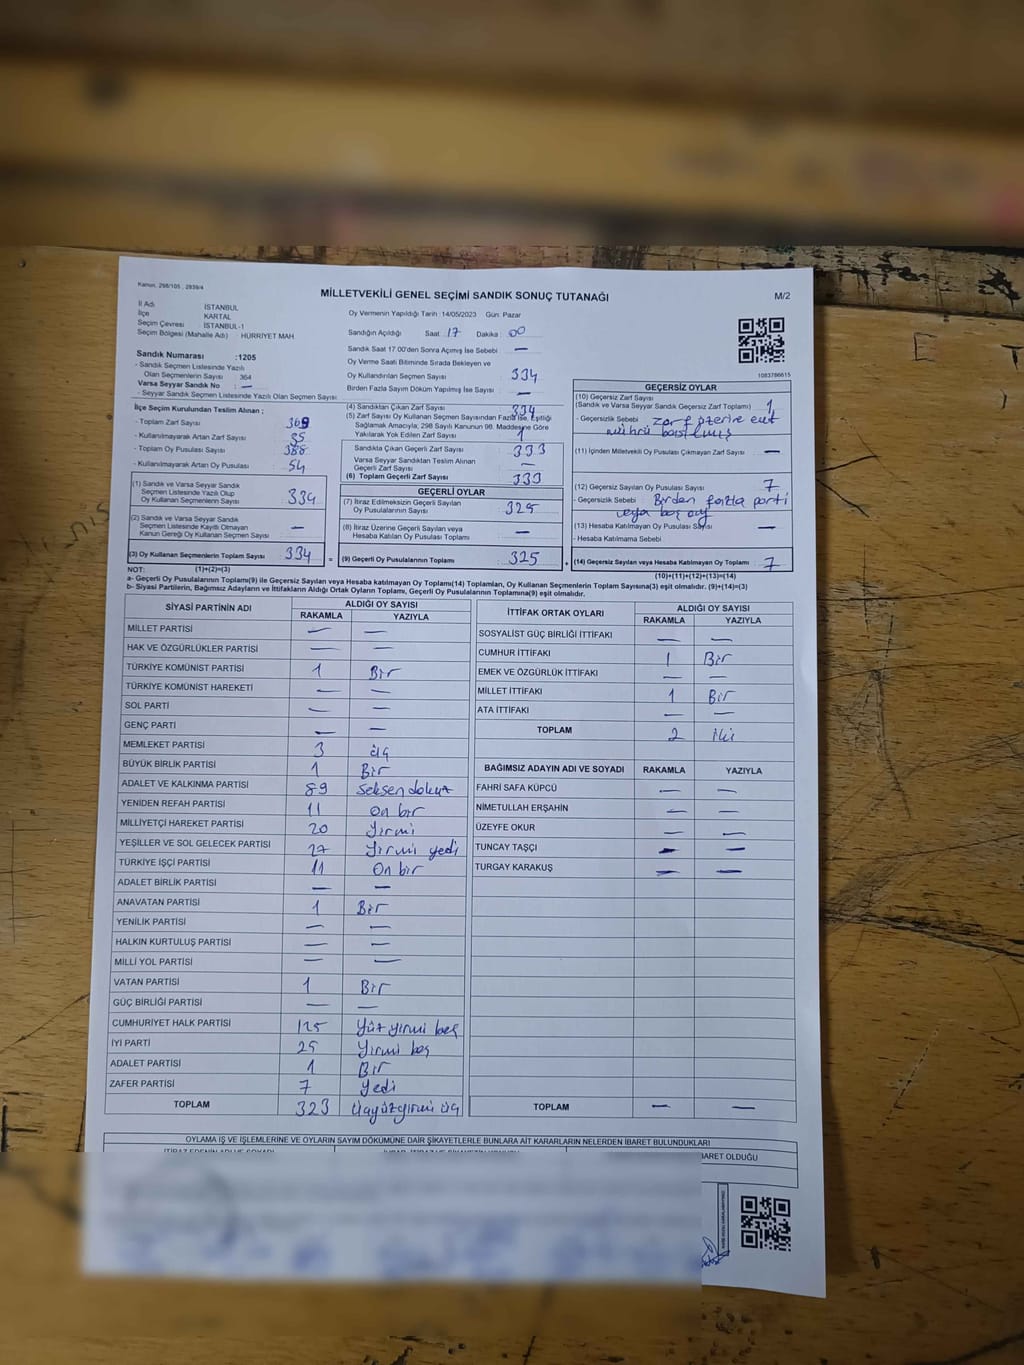 Kanun, 298/105 , 2839/4
MİLLETVEKİLİ GENEL SEÇİMİ SANDIK SONUÇ TUTANAĞI
M/2
İl Adı İSTANBUL
İlçe KARTAL
Seçim Çevresi İSTANBUL-1
Seçim Bölgesi (Mahalle Adı) HÜRRİYET MAH
Sandık Numarası :1205
- Sandık Seçmen Listesinde Yazılı
Olan Seçmenlerin Sayısı 364
Varsa Seyyar Sandık No : —
- Seyyar Sandık Seçmen Listesinde Yazılı Olan Seçmen Sayısı
Oy Vermenin Yapıldığı Tarih :14/05/2023 Gün: Pazar
Sandığın Açıldığı Saat 17 Dakika : 00
Sandık Saat 17 00'den Sonra Açımış İse Sebebi —
Oy Verme Saati Bitiminde Sırada Bekleyen ve
Oy Kullandırılan Seçmen Sayısı 334
Birden Fazla Sayım Döküm Yapılmış İse Sayısı —
1083786615
İlçe Seçim Kurulundan Teslim Alınan ;
- Toplam Zarf Sayısı 369
- Kullanılmayarak Artan Zarf Sayısı 35
- Toplam Oy Pusulası Sayısı 388
- Kullanılmayarak Artan Oy Pusulası 54
(1) Sandık ve Varsa Seyyar Sandık
Seçmen Listesinde Yazılı Olup
Oy Kullanan Seçmenlerin Sayısı 334
(2) Sandık ve Varsa Seyyar Sandık
Seçmen Listesinde Kayıtlı Olmayan
Kanun Gereği Oy Kullanan Seçmen Sayısı —
(3) Oy Kullanan Seçmenlerin Toplam Sayısı 334
(4) Sandıktan Çıkan Zarf Sayısı 334
(5) Zarf Sayısı Oy Kullanan Seçmen Sayısından Fazla İse, Eşitliği
Sağlamak Amacıyla, 298 Sayılı Kanunun 98. Maddesine Göre
Yakılarak Yok Edilen Zarf Sayısı 1
Sandıkta Çıkan Geçerli Zarf Sayısı 333
Varsa Seyyar Sandıktan Teslim Alınan
Geçerli Zarf Sayısı —
(6) Toplam Geçerli Zarf Sayısı 333
GEÇERLİ OYLAR
(7) İtiraz Edilmeksizin Geçerli Sayılan
Oy Pusulalarının Sayısı 325
(8) İtiraz Üzerine Geçerli Sayılan veya
Hesaba Katılan Oy Pusulaları Toplamı —
= (9) Geçerli Oy Pusulalarının Toplamı 325
GEÇERSİZ OYLAR
(10) Geçersiz Zarf Sayısı
(Sandık ve Varsa Seyyar Sandık Geçersiz Zarf Toplamı) 1
- Geçersizlik Sebebi zarf üzerine evet
mührü basılmış
(11) İçinden Milletvekili Oy Pusulası Çıkmayan Zarf Sayısı —
(12) Geçersiz Sayılan Oy Pusulası Sayısı 7
- Geçersizlik Sebebi Birden fazla parti
veya boş oy
(13) Hesaba Katılmayan Oy Pusulası Sayısı —
- Hesaba Katılmama Sebebi
+ (14) Geçersiz Sayılan veya Hesaba Katılmayan Oy Toplamı 7
NOT: (1)+(2)=(3)
(10)+(11)+(12)+(13)=(14)
a- Geçerli Oy Pusulalarının Toplamı(9) ile Geçersiz Sayılan veya Hesaba katılmayan Oy Toplamı(14) Toplamları, Oy Kullanan Seçmenlerin Toplam Sayısına(3) eşit olmalıdır. (9)+(14)=(3)
b- Siyasi Partilerin, Bağımsız Adayların ve İttifakların Aldığı Ortak Oyların Toplamı, Geçerli Oy Pusulalarının Toplamına(9) eşit olmalıdır.
SİYASİ PARTİNİN ADI ALDIĞI OY SAYISI
RAKAMLA YAZIYLA
MİLLET PARTİSİ — —
HAK VE ÖZGÜRLÜKLER PARTİSİ — —
TÜRKİYE KOMÜNİST PARTİSİ 1 Bir
TÜRKİYE KOMÜNİST HAREKETİ — —
SOL PARTİ — —
GENÇ PARTİ — —
MEMLEKET PARTİSİ 3 üç
BÜYÜK BİRLİK PARTİSİ 1 Bir
ADALET VE KALKINMA PARTİSİ 89 Seksen dokuz
YENİDEN REFAH PARTİSİ 11 On bir
MİLLİYETÇİ HAREKET PARTİSİ 20 Yirmi
YEŞİLLER VE SOL GELECEK PARTİSİ 27 Yirmi yedi
TÜRKİYE İŞÇİ PARTİSİ 11 On bir
ADALET BİRLİK PARTİSİ — —
ANAVATAN PARTİSİ 1 Bir
YENİLİK PARTİSİ — —
HALKIN KURTULUŞ PARTİSİ — —
MİLLİ YOL PARTİSİ — —
VATAN PARTİSİ 1 Bir
GÜÇ BİRLİĞİ PARTİSİ — —
CUMHURİYET HALK PARTİSİ 125 Yüz yirmi beş
İYİ PARTİ 25 Yirmi beş
ADALET PARTİSİ 1 Bir
ZAFER PARTİSİ 7 Yedi
TOPLAM 323 Üçyüzyirmi üç
İTTİFAK ORTAK OYLARI ALDIĞI OY SAYISI
RAKAMLA YAZIYLA
SOSYALİST GÜÇ BİRLİĞİ İTTİFAKI — —
CUMHUR İTTİFAKI 1 Bir
EMEK VE ÖZGÜRLÜK İTTİFAKI — —
MİLLET İTTİFAKI 1 Bir
ATA İTTİFAKI — —
TOPLAM 2 iki
BAĞIMSIZ ADAYIN ADI VE SOYADI RAKAMLA YAZIYLA
FAHRİ SAFA KÜPCÜ — —
NİMETULLAH ERŞAHİN — —
ÜZEYFE OKUR — —
TUNCAY TAŞÇI — —
TURGAY KARAKUŞ — —
TOPLAM — —
OYLAMA İŞ VE İŞLEMLERİNE VE OYLARIN SAYIM DÖKÜMÜNE DAİR ŞİKAYETLERLE BUNLARA AİT KARARLARIN NELERDEN İBARET BULUNDUKLARI
BARET OLDUĞU